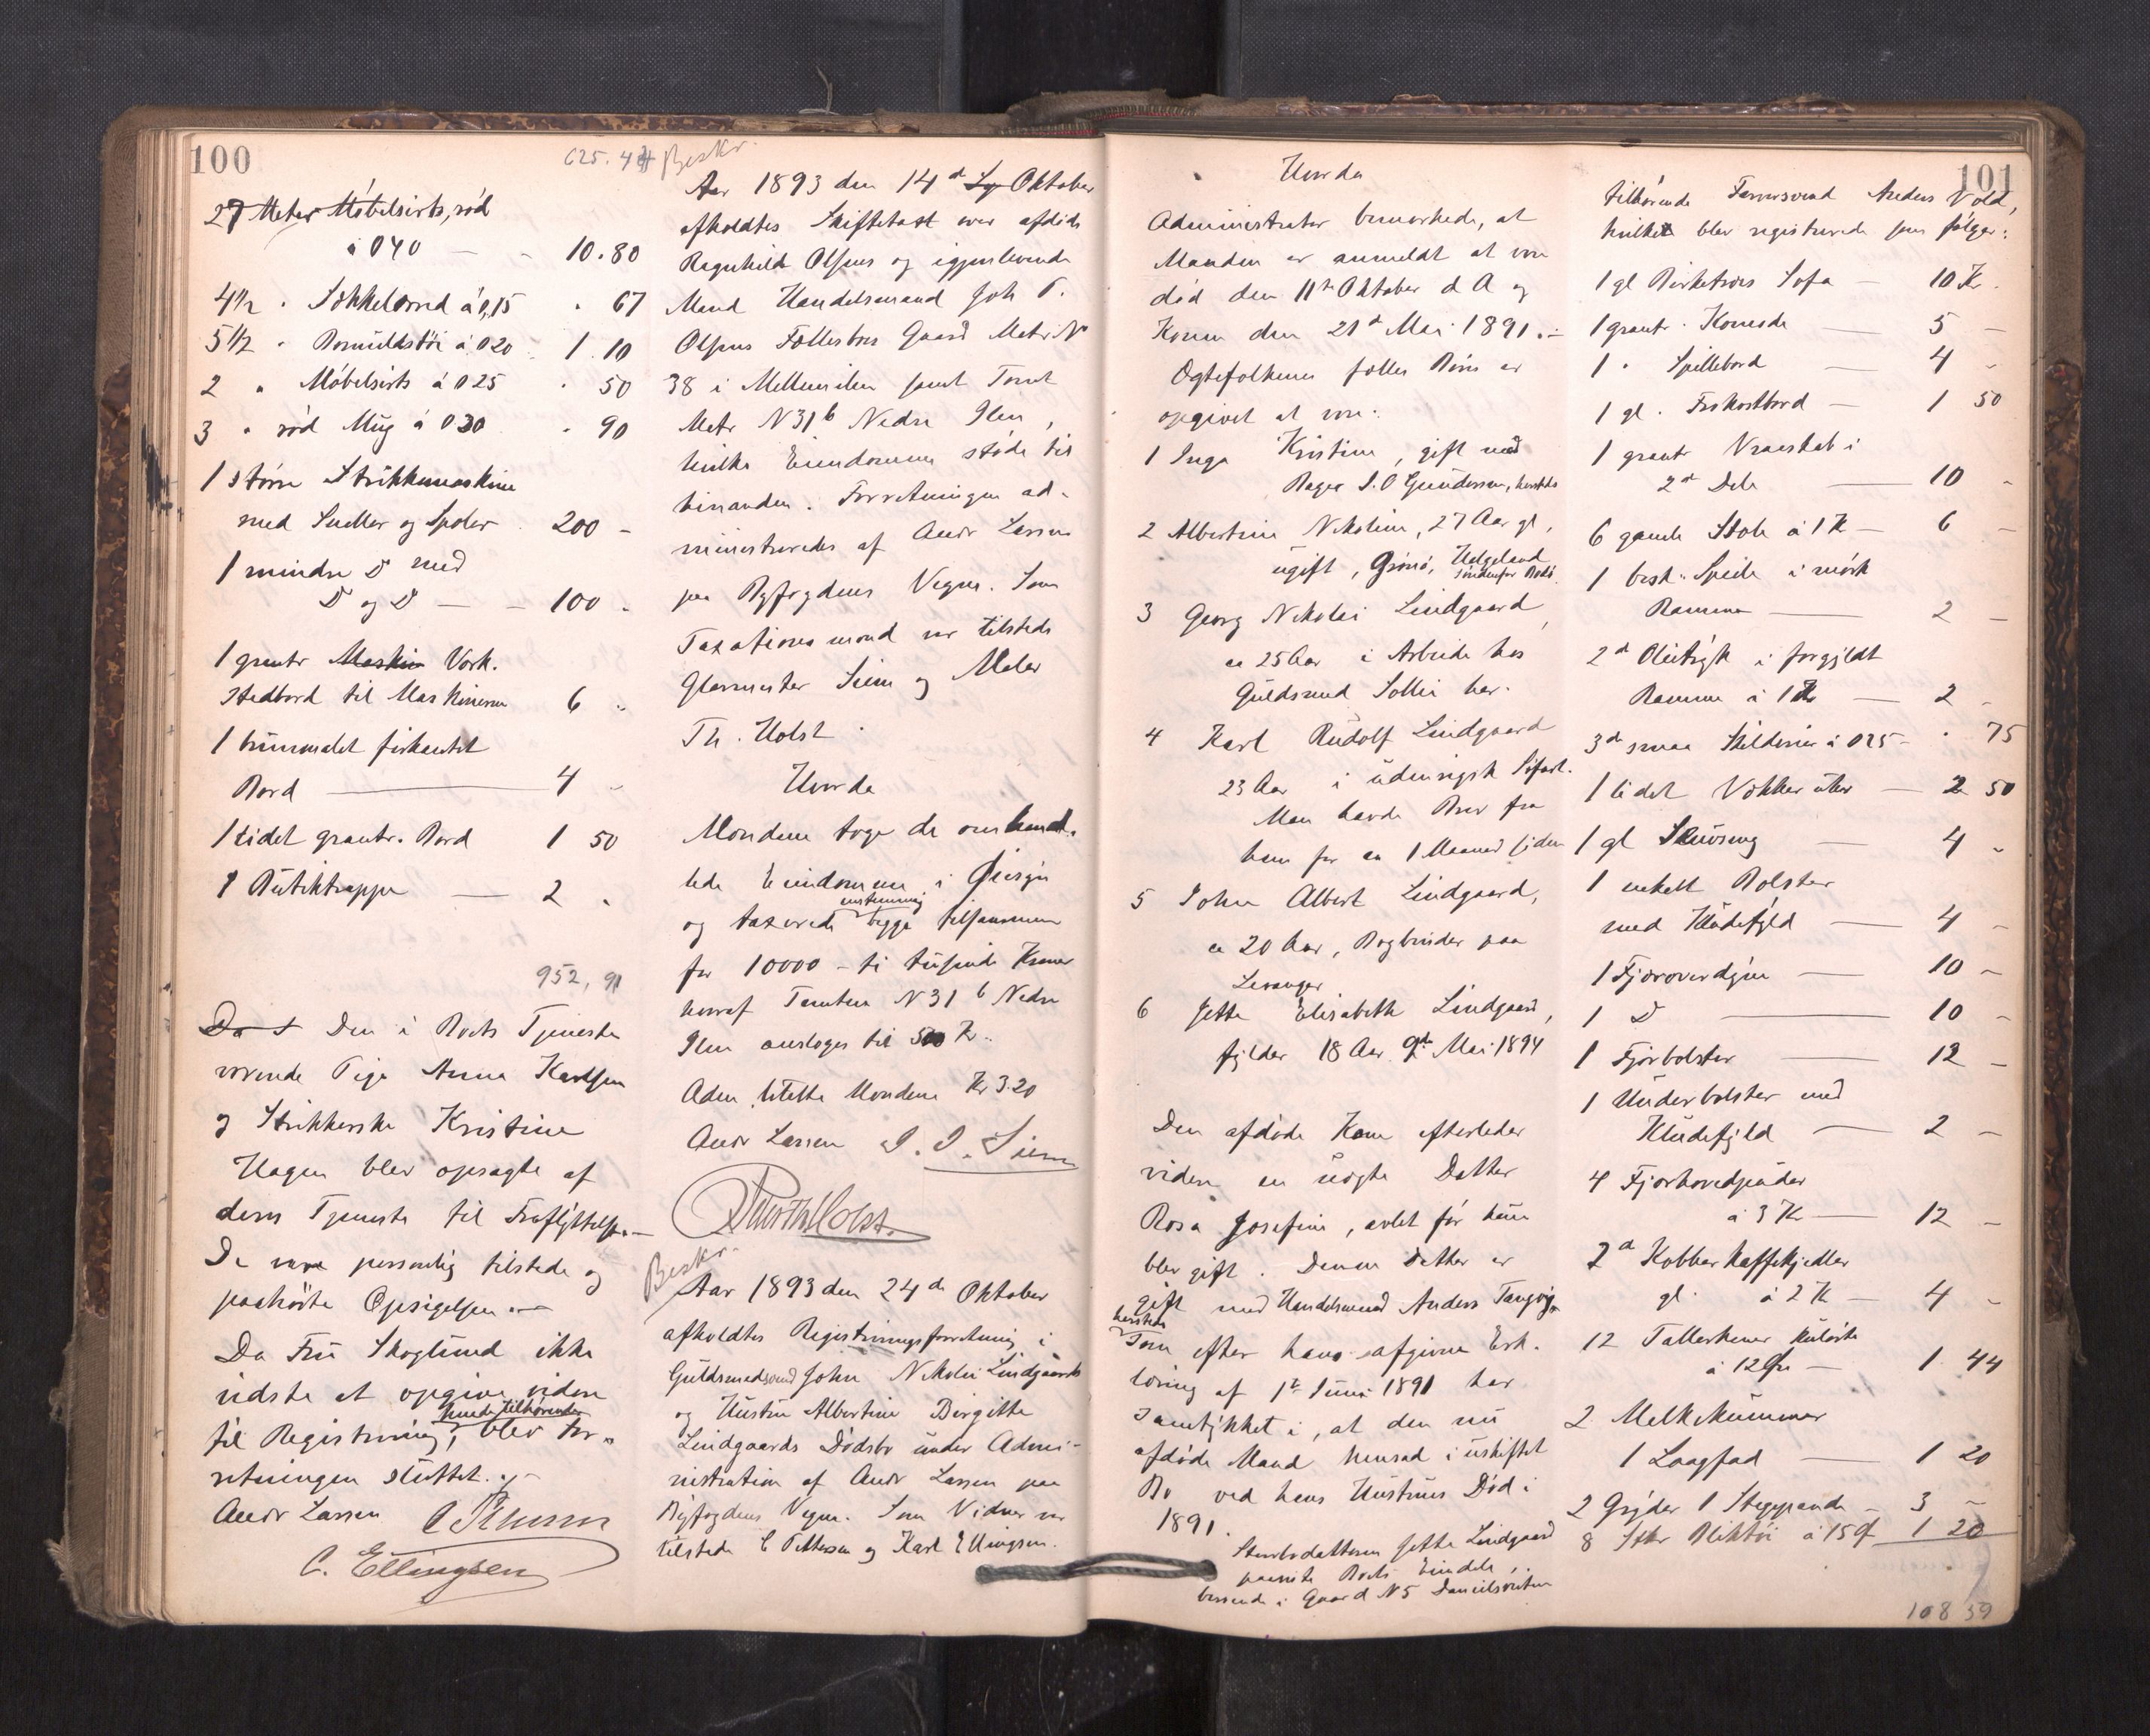 100
625.44
27 Meter Möbelsirts, rød
à 040 — - 10.80
4½ " Sokkelorred à 0,15 " 67
5½ " Bomuldstöi à 020 1.10
2 " Möbelsirts à 025 " 50
3 " rød Müg à 030 " 90
1 större Strikkemaskine
med Sneller og Spoler 200 -
1 mindre D med
D og D — - 100 -
1 grantr Maskin Vork.
stedbord til Maskinerne 6 "
1 brünmalet firkantet
Bord — 4 -
1 lidet grantr. Bord 1 50
1 Bütiktrappe — 2 "
952,91
Da S Den i Boets Tjeneste
værende Pige Anna Karlsen
og Strikkerske Kristine
Hagen blev opsagte af
deres Tjeneste til Fraflÿttelse.—
De vare personlig tilstede og
paahörte Opsigelsen.—
Da Frü Skoglünd ikke
vidste at opgive videre
hende tilhörende
til Registrering, blev For-
retningen slüttet.
Andr Larsen
C. Ellingsen
Beskr.
Aar 1893 den 14d Sep Oktober
afholdtes Skiftetaxt over afdöde
Ragnhild Olsens og igjenlevende
Mand Handelsmand Joh P.
Olsens Fællesbos Gaard Matr N°
38 i Mellemilen samt Tomt
Matr N 31b Nedre Ilen,
hvilke Eiendomme stöde til
hinanden. Forretningen ad-
ministreredes af Andr Larsen
paa Byfogdens Vegne. Som
Taxationsmænd var tilstede
Glarmester Siem og Maler
Th. Holst.
Hvorda
Mændene toge de omhand-
lede Eiendomme i Öiesyn
enstemmig
og taxerede begge tilsammen
for 10000 - ti tüsinde Kroner
hvoraf Tomten N 31 b Nedre
Ilen ansloges til 500 Kr.
Aden tilstette Mændene Kr 3.20
Andr Larsen J. J. Siem
Beskr.
Aar 1893 den 24de Oktober
afholdtes Registreringsforretning i
Güldsmedsvend John Nikolai Lindgaards
og Hüstrü Albertine Birgitte
Lindgaards Dödsbo ünder Admi-
nistration af Andr Larsen paa
Byfogdens Vegne. Som Vidner var
tilstede C Pettersen og Karl Ellingsen.
101
Hvorda
Administrator bemærkede, at
Manden er anmeldt at være
död den 11te Oktober d A og
Konen den 21d Mai 1891.—
Ægtefolkenes fælles Börn er
opgivet at være:
1 Inga Kristine, gift med
Bager J. O Gündersen, hersteds
2 Albertine Nikoline, 27 Aar gl,
ügift, Grönö, Helgeland
söndenfor Bodö.
3 Georg Nikolai Lindgaard,
ca 25 Aar i Arbeide hos
Güldsmed Sollie her.
4 Karl Rüdolf Lindgaard
23 Aar i üdenrigsk Söfart.
Man havde Brev fra
ham for ca 1 Maaned siden
5 John Albert Lindgaard,
ca 20 Aar, Bogbinder paa
Levanger
6 Jette Elisabeth Lindgaard,
fylder 18 Aar 9de Mai 1894
Den afdöde Kone efterlader
videre en üægte Datter
Rosa Josefine, avlet för hün
blev gift. Denne Datter er
gift med Handelsmand Anders Tangvig
hersteds
Som efter hans afgivne Erk-
læring af 1te Jüni 1891 har
samtÿkket i, at den nü
afdöde Mand hensad i üskiftet
Bo ved hans Hüstrües Död i
1891.
Stervbodatteren Jette Lindgaard
paaviste Boets Eiendele,
beroende i Gaard N 5 Danielsveiten
tilhörende Farversvend Anders Vold,
hvilket blev registrerede som fölger:
1 gl Birketræs Sofa — 10 Kr.
1 grantr. Komode — 5 -
1 " Spillebord — 4 -
1 gl. Frokostbord — 1 50
1 grantr Vraeskab i
2d Dele — 10 -
6 gamle Stole à 1 Kr — 6 -
1 besk. Speile i mörk
Ramme — 2 -
2d Olietrÿk i forgyldt
Ramme à 1 Kr — 2 -
3d smaa Skilderier à 025 - " 75
1 lidet Vækkerühr — 2 50
1 gl Skuvseng — 4 -
1 enkelt Bolster
med Klüdefyld — 4 -
1 Fjæroverdyne — 10 -
1 D — 10 -
1 Fjærbolster — 12 -
1 Ünderbolster med
Klüdefyld — 2 -
4 Fjærhovedpüder
à 3 Kr — 12 -
2d Kobberkaffekjedler
gl. à 2 Kr — 4 -
12 Tallerkener külörte
à 12 Öre — 1. 44
2 Melkekümmer
1 Laagfad — 1 20
2 Grÿder 1 Stegepande — 3 -
8 Stkr Bliktöi à 15 Ø 1 20
108 59